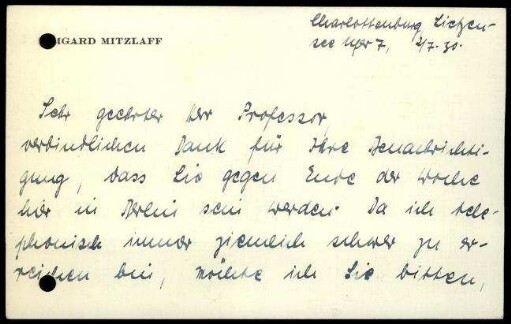 Charlottenburg, Lietzen-
see Ufer 7, 2/7. 30.
MGARD MITZLAFF
Sehr geehrter Herr Professor,
verbindlichen Dank für Ihre Benachrichti-
gung, dass Sie gegen Ende der Woche
hier in Berlin sein werden. Da ich tele-
phonisch immer ziemlich schwer zu er-
reichen bin, möchte ich Sie bitten,